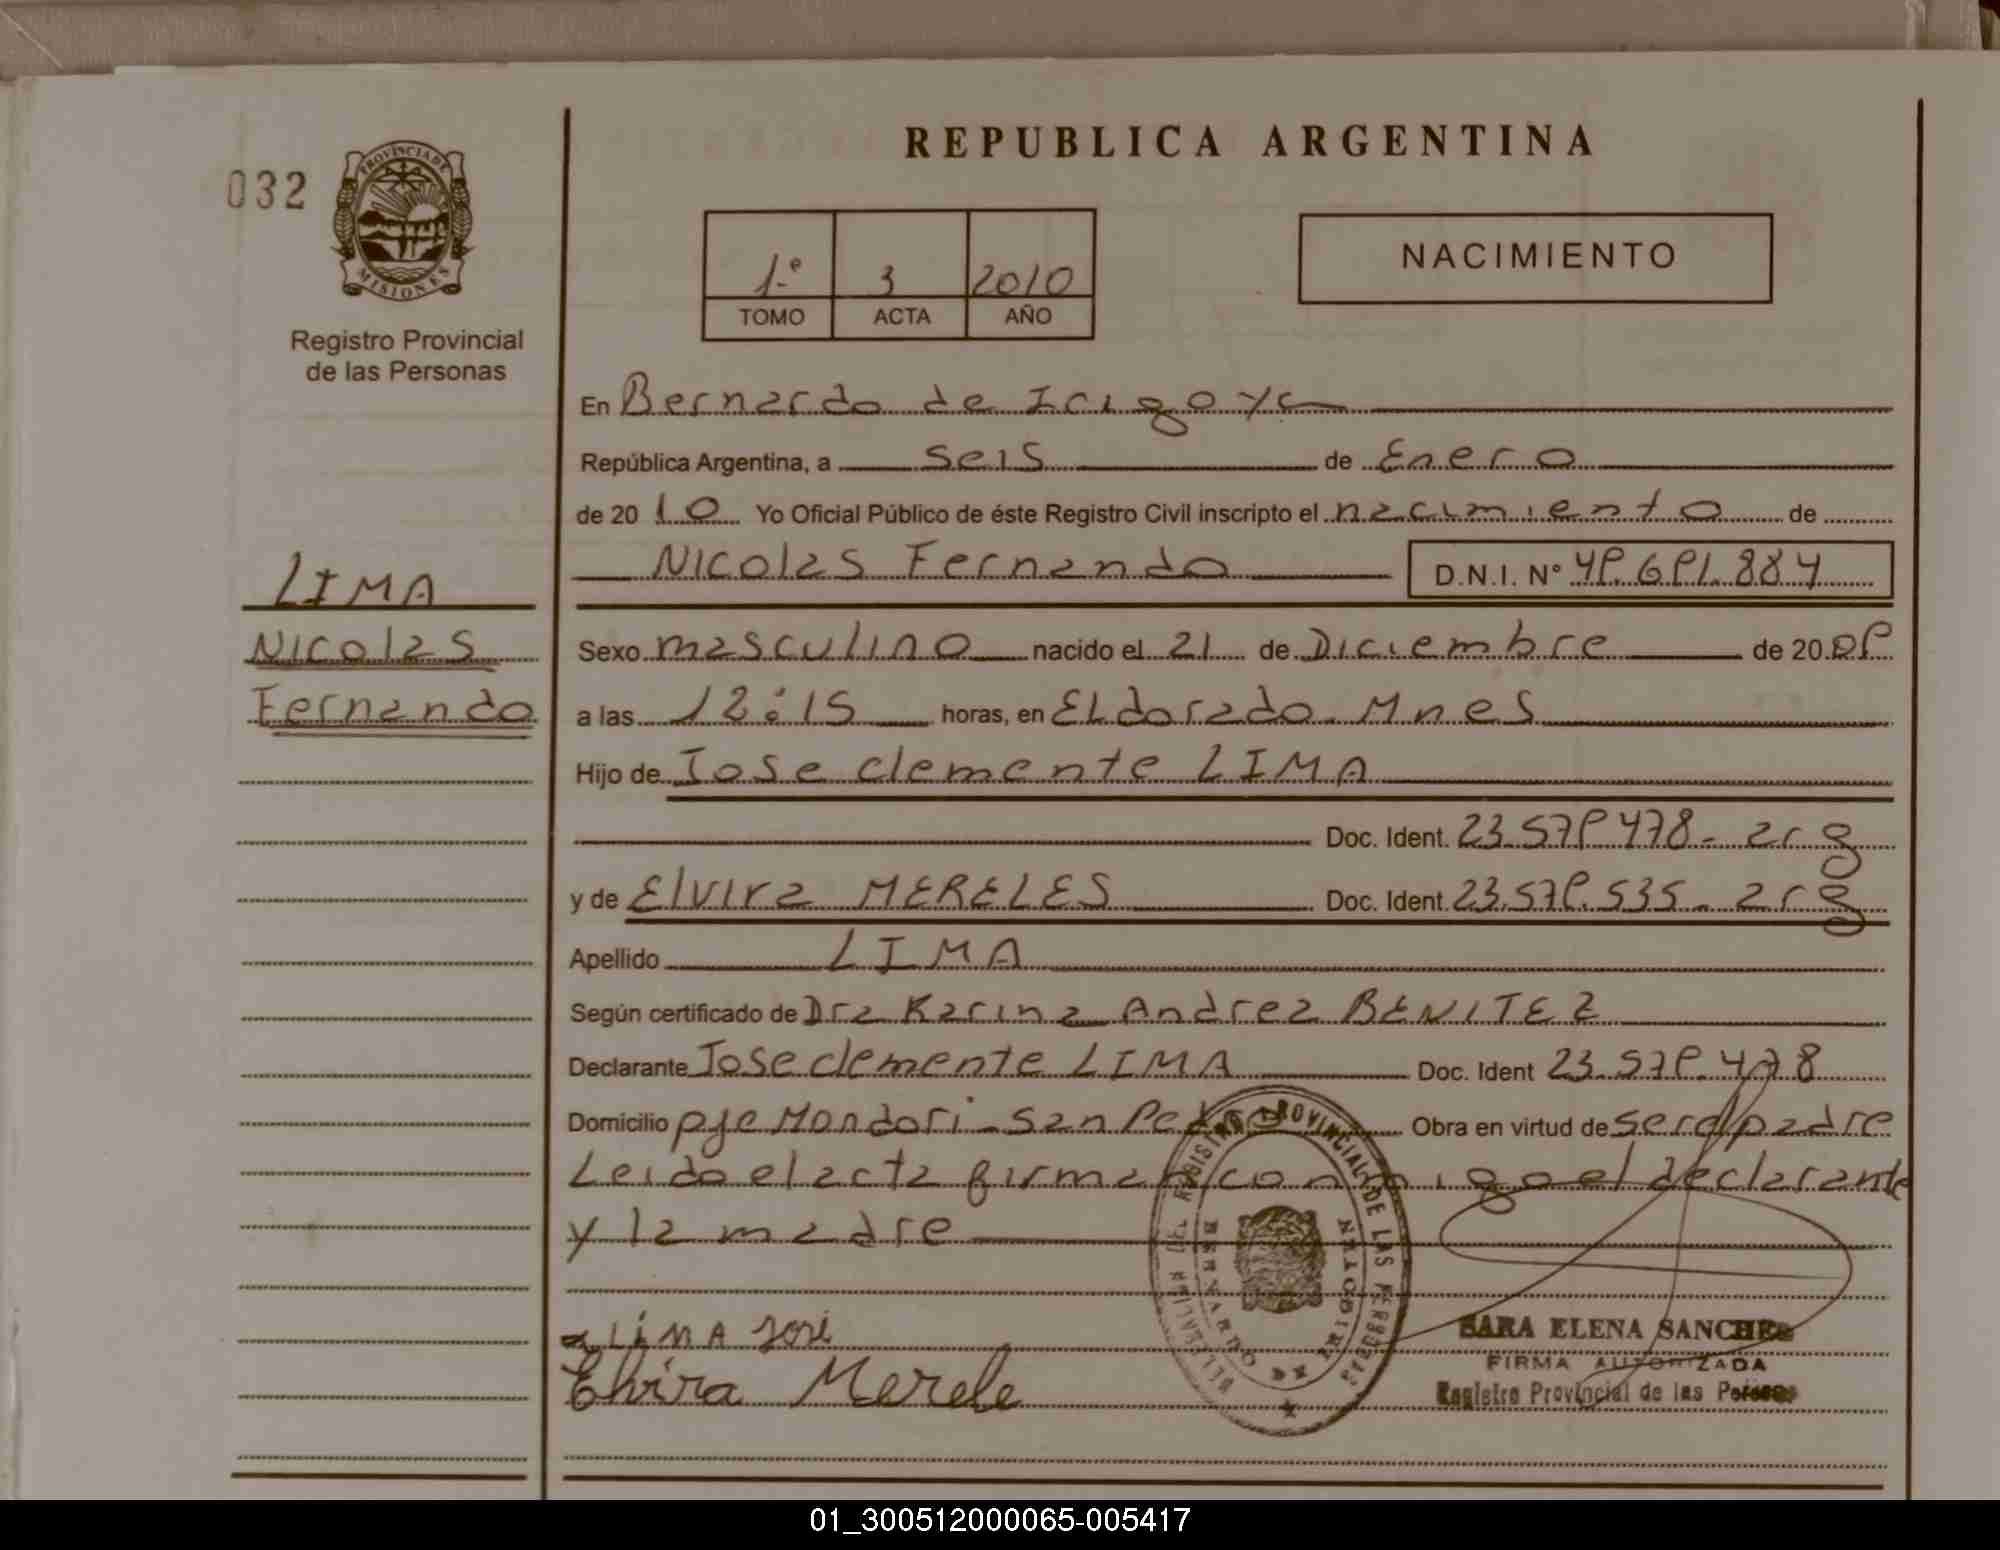 REPUBLICA ARGENTINA
032
PROVINCIA DE
MISIONES
Registro Provincial
de las Personas
1º 3 2010
TOMO ACTA AÑO
NACIMIENTO
En Bernardo de Irigoye
República Argentina, a seis de Enero
de 2010 Yo Oficial Público de éste Registro Civil inscripto el nacimiento de
Nicolas Fernando D.N.I. Nº 49.691.884
LIMA
Nicolas
Fernando
Sexo masculino nacido el 21 de Diciembre de 2009
a las 12:15 horas, en Eldorado. Mnes
Hijo de Jose clemente LIMA
Doc. Ident. 23.579478- arg
y de Elvira MERELES Doc. Ident. 23.579.535- arg
Apellido LIMA
Según certificado de Dra Karina Andrea BENITEZ
Declarante Jose clemente LIMA Doc. Ident 23.579.478
Domicilio pje Mondori - San Pedro Obra en virtud de ser el padre
Leido el acta firman conmigo el declarante
y la madre
LiMA José
Elvira Merele
REGISTRO PROVINCIAL DE LAS PERSONAS
BERNARDO DE IRIGOYEN
SARA ELENA SANCHEZ
FIRMA AUTORIZADA
Registro Provincial de las Personas
01_300512000065-005417